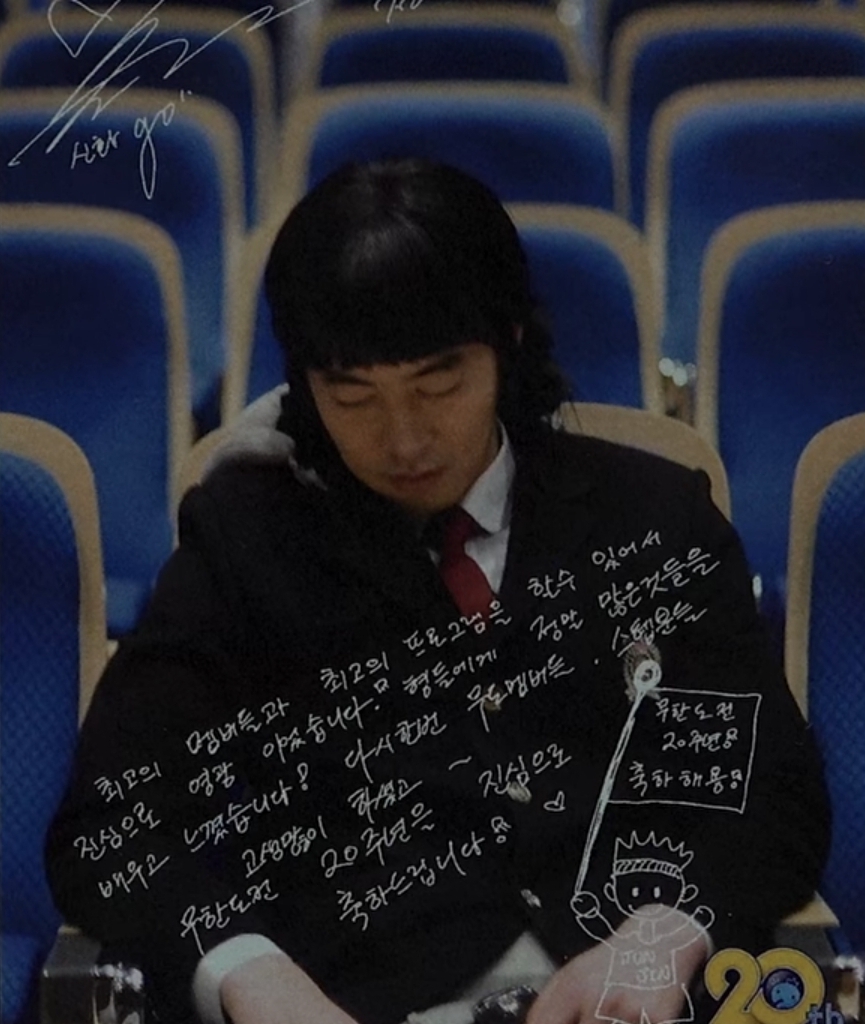 신화
go"
최고의 멤버들과 최고의 프로그램을 한수 있어서
진심으로 영광 이었습니다! 형들에게 정말 많은것들을
배우고 느꼈습니다! 다시한번 무도멤버들. 스텝분들
고생많이 하셨고 ~ 진심으로
무한도전 20주년을 ♡
축하드립니다!
무한도전
20주년!
축하해용!
JUN
JIN
20th